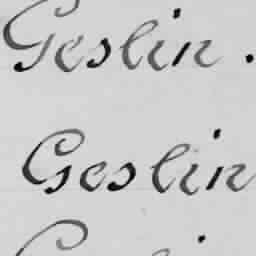 Geslin.
Geslin